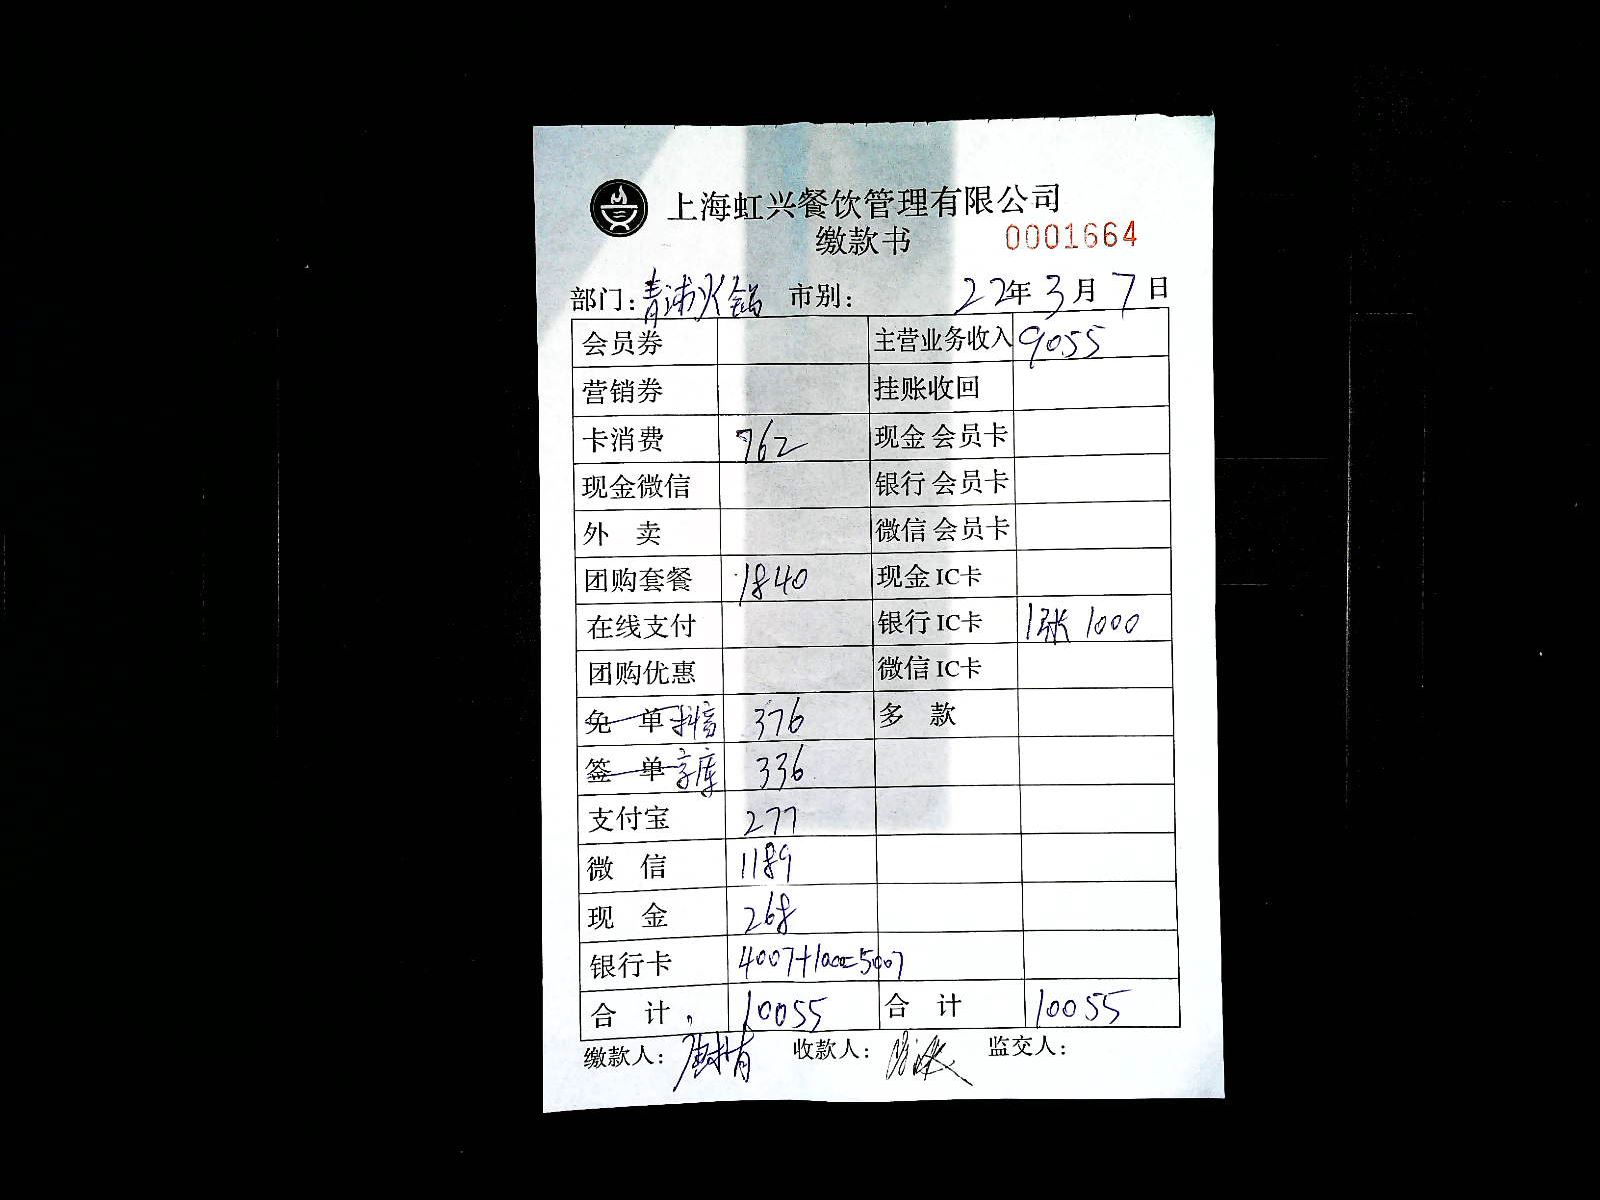 上海虹兴餐饮管理有限公司
缴款书 0001664
部门：青浦火锅 市别： 22年3月7日
会员券 主营业务收入 9055
营销券 挂账收回
卡消费 762 现金 会员卡
现金微信 银行 会员卡
外 卖 微信 会员卡
团购套餐 1840 现金 IC卡
在线支付 银行 IC卡 1张 1000
团购优惠 微信 IC卡
免 单 抖音 376 多 款
签 单 336
支付宝 277
微 信 1189
现 金 268
银行卡 4007+1000=5007
合 计 10055 合 计 10055
缴款人： 收款人： 监交人：